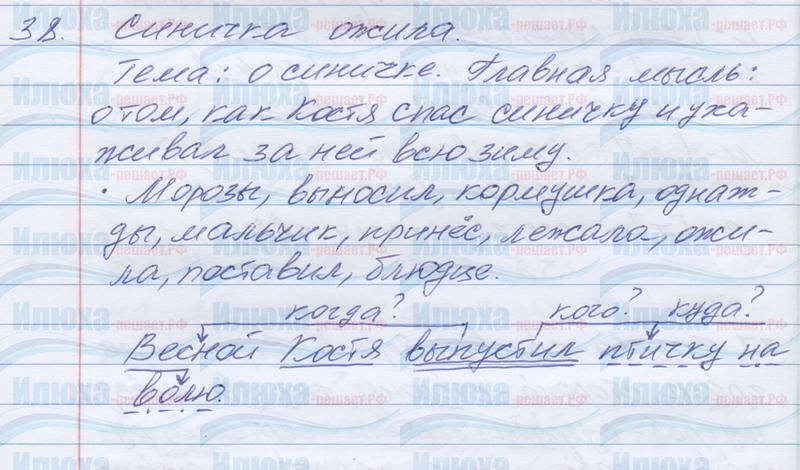 38. Синичка ожила.
Тема: о синичке. Главная мысль:
о том, как Костя спас синичку и уха-
живал за ней всю зиму.
• Морозы, выносил, кормушка, однаж-
ды, мальчик, принёс, лежала, ожи-
ла, поставил, блюдце.
когда? кого? куда?
Весной Костя выпустил птичку на
волю.